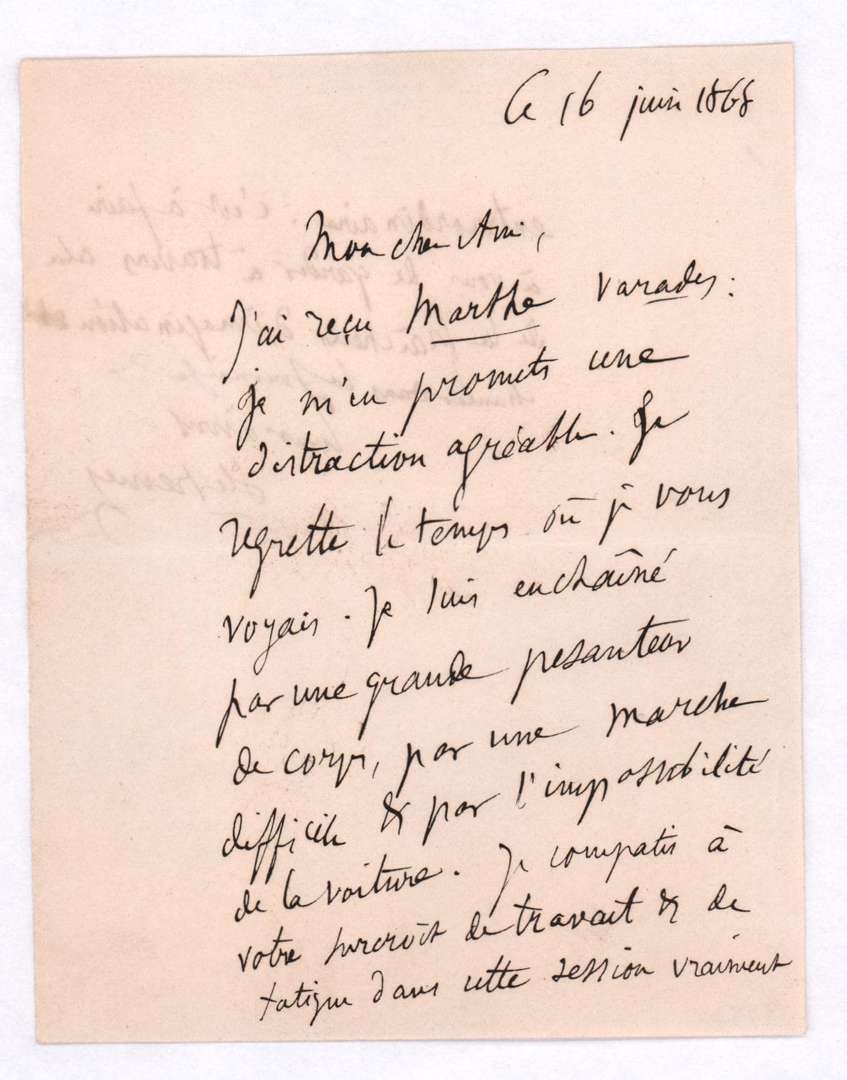 Ce 16 juin 1868
Mon cher Ami,
J'ai reçu Marthe Varades :
je m'en promets une
distraction agréable. Je
regrette le temps où je vous
voyais. Je suis enchaîné
par une grande pesanteur
de corps, par une marche
difficile & par l'impossibilité
de la voiture. Je compatis à
votre surcroît de travail & de
fatigue dans cette session vraiment